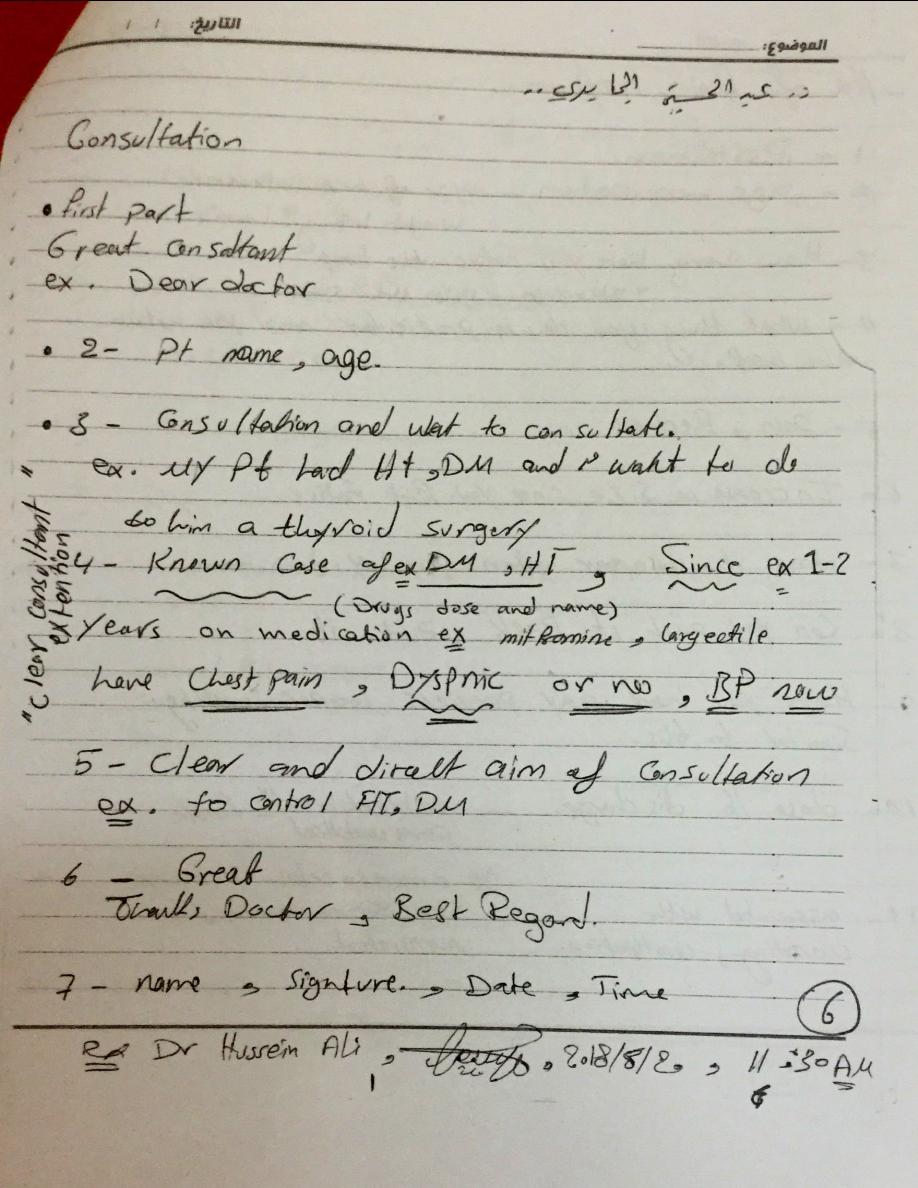 التاريخ: / /
الموضوع:
د. عبد الحسين الجابري ..
Consultation
• first part
Great consaltant
ex. Dear doctor
• 2- Pt name, age.
• 3 - Consultation and wat to consultate.
ex. My Pt had Ht, DM and i waht to do
to him a thyroid surgery
4 - Known Case of ex DM, HT, Since ex 1-2
(Drugs dose and name)
years on medication ex mitformine, largectile.
have Chest pain, Dyspnic or no, BP now
"Clear consultant extention"
5 - Clear and direct aim of Consultation
ex. to control HT, DM
6 - Great
Thanks Doctor, Best Regard.
7 - name, Signture., Date, Time
6
ex Dr Hussein Ali, , 2018/8/20, 11:30 AM